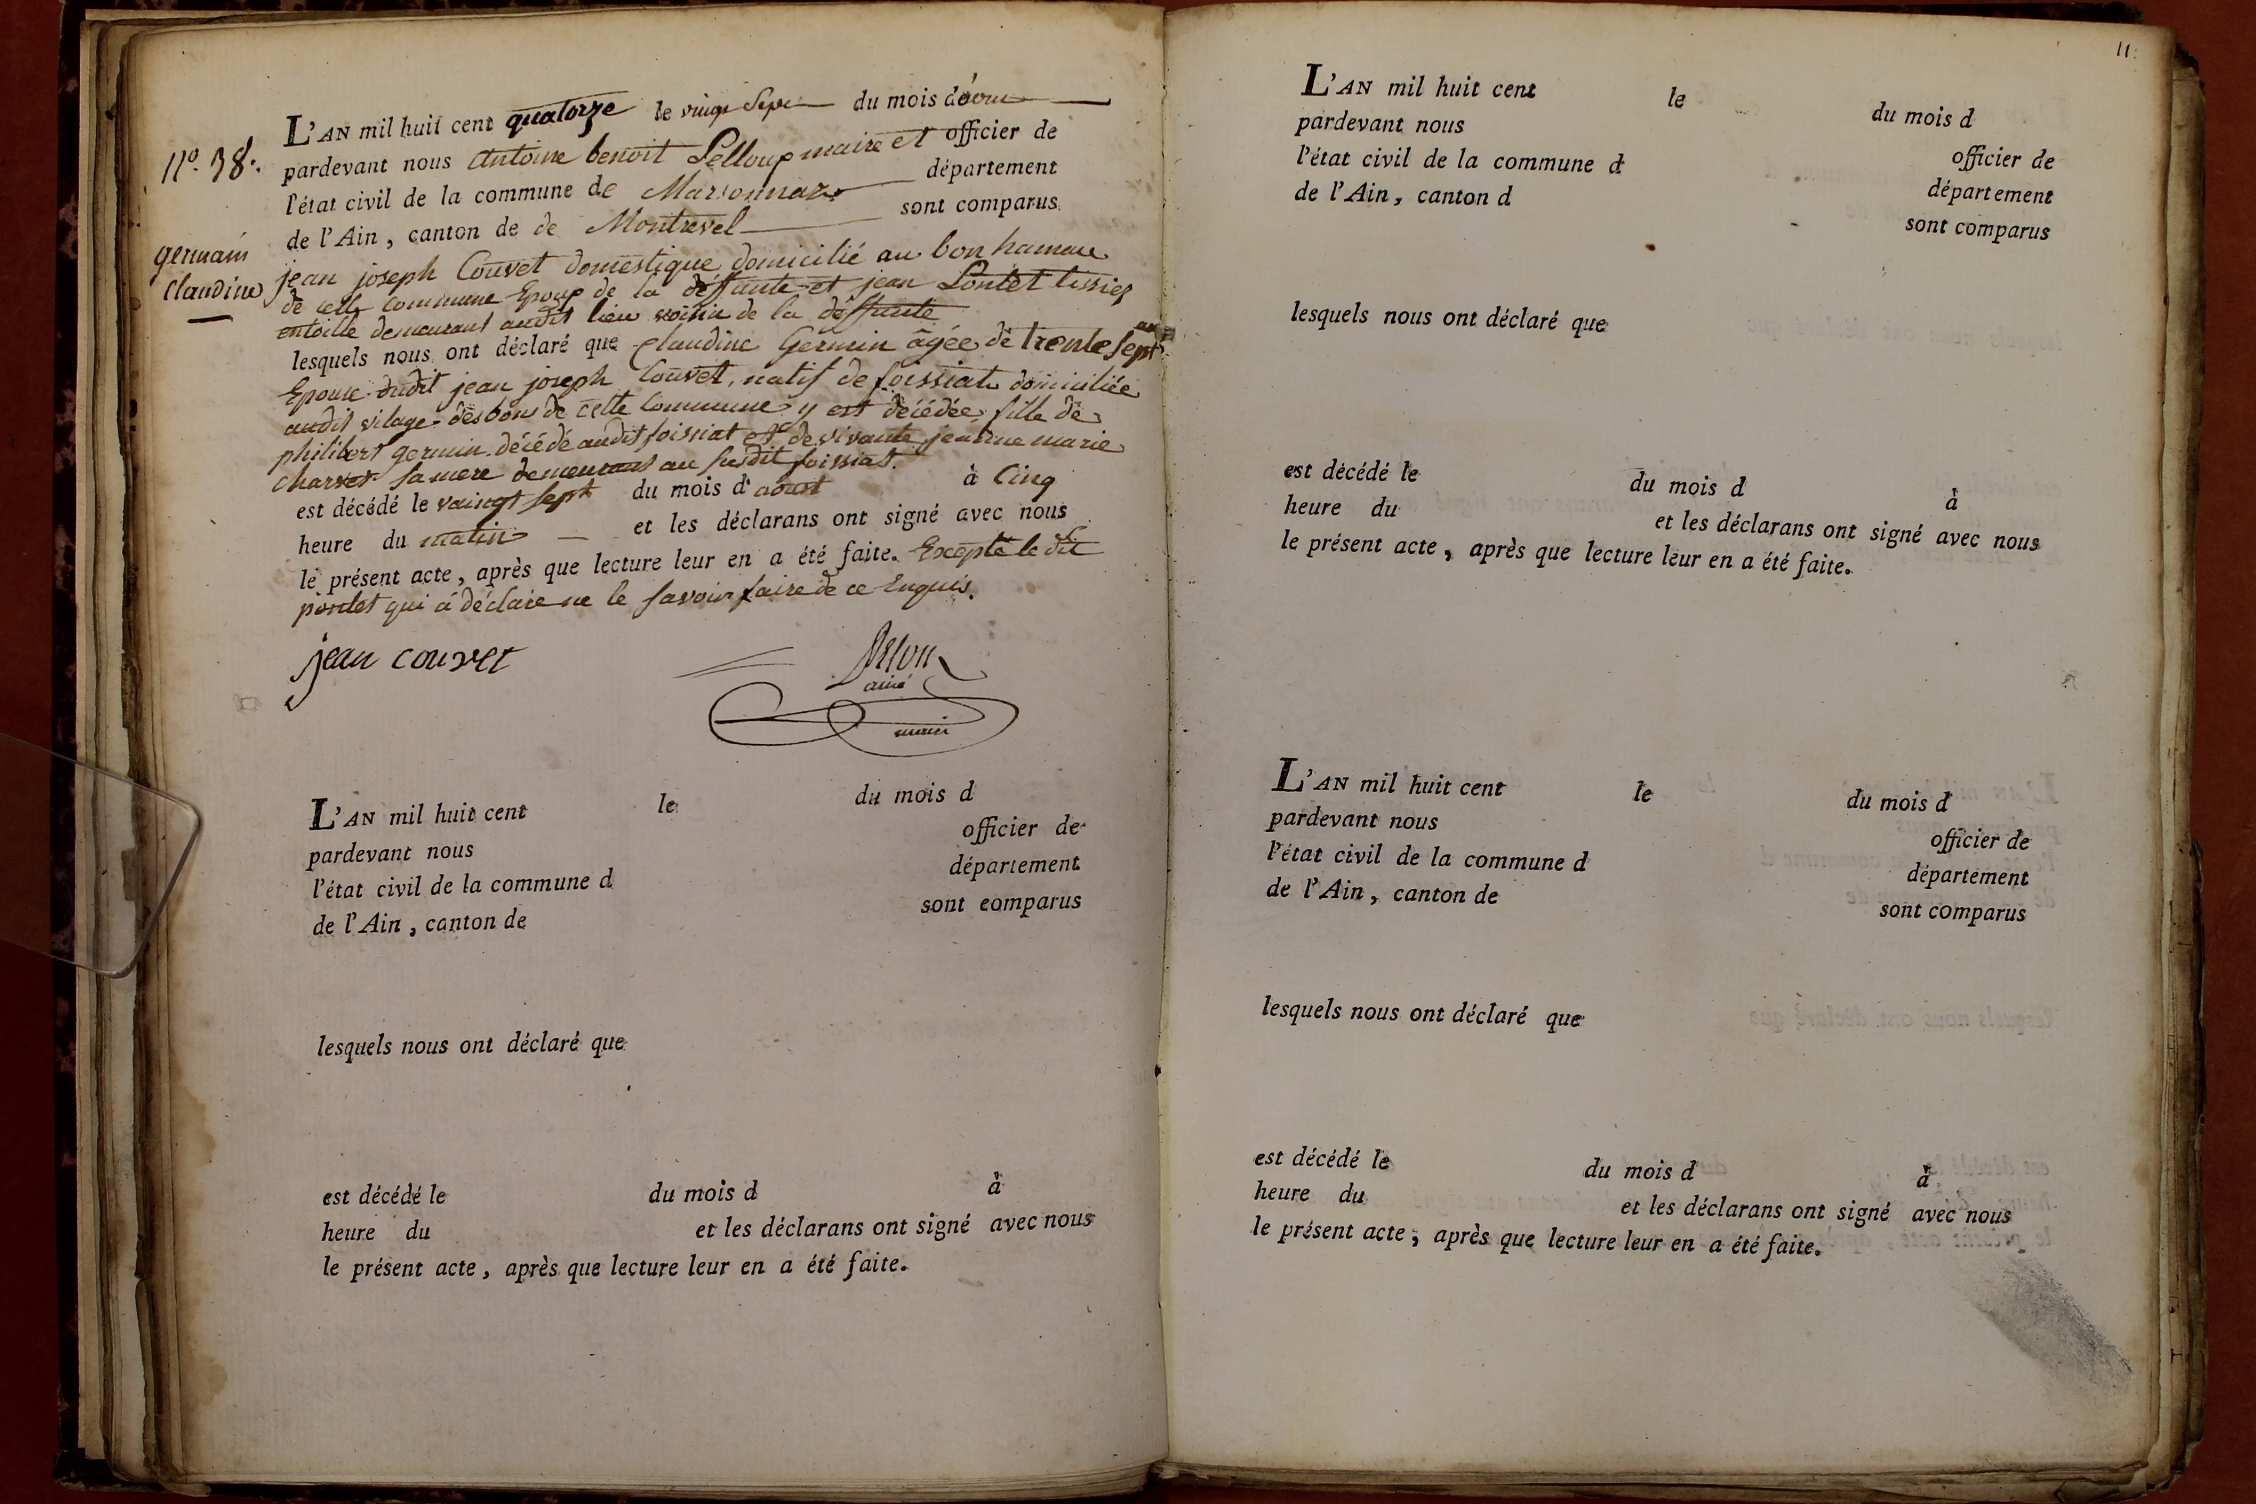 L'AN mil huit cent quatorze le vingt Sept du mois d'aout
N.º 38. pardevant nous antoine benoit maire et officier de
l'état civil de la commune de Marsonnaz département
de l'Ain, canton de de Montrevel sont comparus
germain
Claudine
jean joseph Couvet domestique domicilié au bon hameau
de cette commune Epoux de la deffunte et jean tissier
entoille demeurant audit lieu voisin de la deffunte
lesquels nous ont déclaré que Claudine Germin âgée de trente sept ans
Epouse dudit jean joseph Couvet, natif de foissiat domiciliée
audit vilage des bons de cette Commune y est décédée, fille de
philibert germin décédé audit foissiat et de vivante jeanne marie
charvet sa mere demeurant au susdit foissiat.
est décédé le vaingt sept du mois d'aoust à Cinq
heure du matin et les déclarans ont signé avec nous
le présent acte, après que lecture leur en a été faite. Excepté le dit
qui á déclaré ne le savoir faire de ce Enquis.
jean couvet
ainé
maire
L'AN mil huit cent le du mois d
pardevant nous officier de
l'état civil de la commune d département
de l'Ain, canton de sont comparus
lesquels nous ont déclaré que
est décédé le du mois d à
heure du et les déclarans ont signé avec nous
le présent acte, après que lecture leur en a été faite.
11.
L'AN mil huit cent le du mois d
pardevant nous officier de
l'état civil de la commune d département
de l'Ain, canton d sont comparus
lesquels nous ont déclaré que
est décédé le du mois d à
heure du et les déclarans ont signé avec nous
le présent acte, après que lecture leur en a été faite.
L'AN mil huit cent le du mois d
pardevant nous officier de
l'état civil de la commune d département
de l'Ain, canton de sont comparus
lesquels nous ont déclaré que
est décédé le du mois d à
heure du et les déclarans ont signé avec nous
le présent acte, après que lecture leur en a été faite.